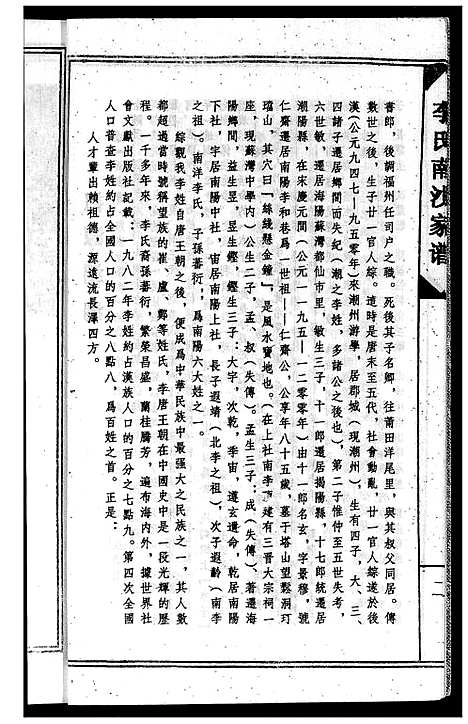 李氏南沙家譜
書郎，後調福州任司户之職。死後其子名卿，往莆田洋尾里，與其叔父同居。傳
数世之後，生子廿一官人綜。遭時是唐末至五代，社會動亂，廿一官人綜遂於後
漢（公元九四七—九五零年）來潮州游學，居郡城（現潮州），生有四子，大、三、
四諸子遷居鄉間而失紀（潮之李姓，多諸公之後也），第二子惟仲至五世失考，
六世敏，遷居海陽蘇灣都仙市里，敏生三子，十一郎遷居揭陽縣，十七郎統遷居
潮陽縣，在宋慶元間（公元一一九五—一二零零年）由十一郎名玄，字景穆，號
仁齋遷居南陽李和巷爲一世祖——仁齋公，公享年八十五歲，墓于塔山望鬆洞玎
璫山，其穴曰『絲綫懸金鐘』，是風水寶地也。（在上社南李 建有三晋大宗祠一
座，現蘇灣中學内）公生二子，孟、叔（失傳）。孟生三子：成（失傳）、著遷海
陽鄉間，益生翌，昱生鏗，鏗生三子：大字，次乾，李宙，遵玄遺命，乾居南陽
下社，字居南陽中社，宙居南陽上社，長子遐靖（北李之祖），次子遐齡（南李
之祖）。南洋李氏，子孫蕃衍，爲南陽六大姓之一。
綜觀我李姓自唐王朝之後，便成爲中華民族中最强大之民族之一，其人數
都超過當時號稱望族的崔、盧、鄭等姓氏，李唐王朝在中國史中是一段光輝的歷
程。一千多年來，李氏裔孫蕃衍，繁榮昌盛，蘭桂騰芳，遍布海内外，據世界社
會文獻出版社記載：一九八二年李姓約占漢族人口的百分之七點九。第四次全國
人口普查李姓約占全國人口的百分之八點八，爲百姓之首。正是：
人才輩出賴祖德，源遠流長澤四方。
二